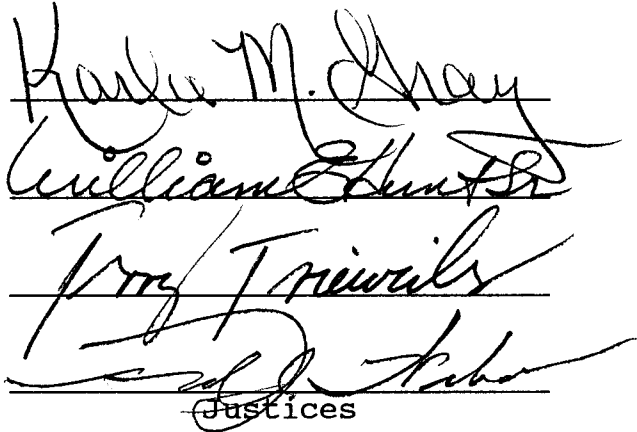 Karla M. Gray
William E Hunt Sr
Terry Trieweiler
Justices